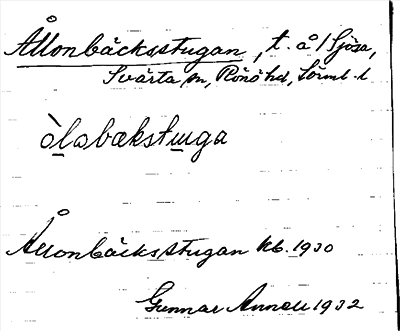 Ållonbäcksstugan, t. å / Sjösa,
Svärta sn, Rönö hd, Sörml. l
ò̱lobækstu̱ga
Ållonbäcksstugan kb. 1930
Gunnar Annell 1932